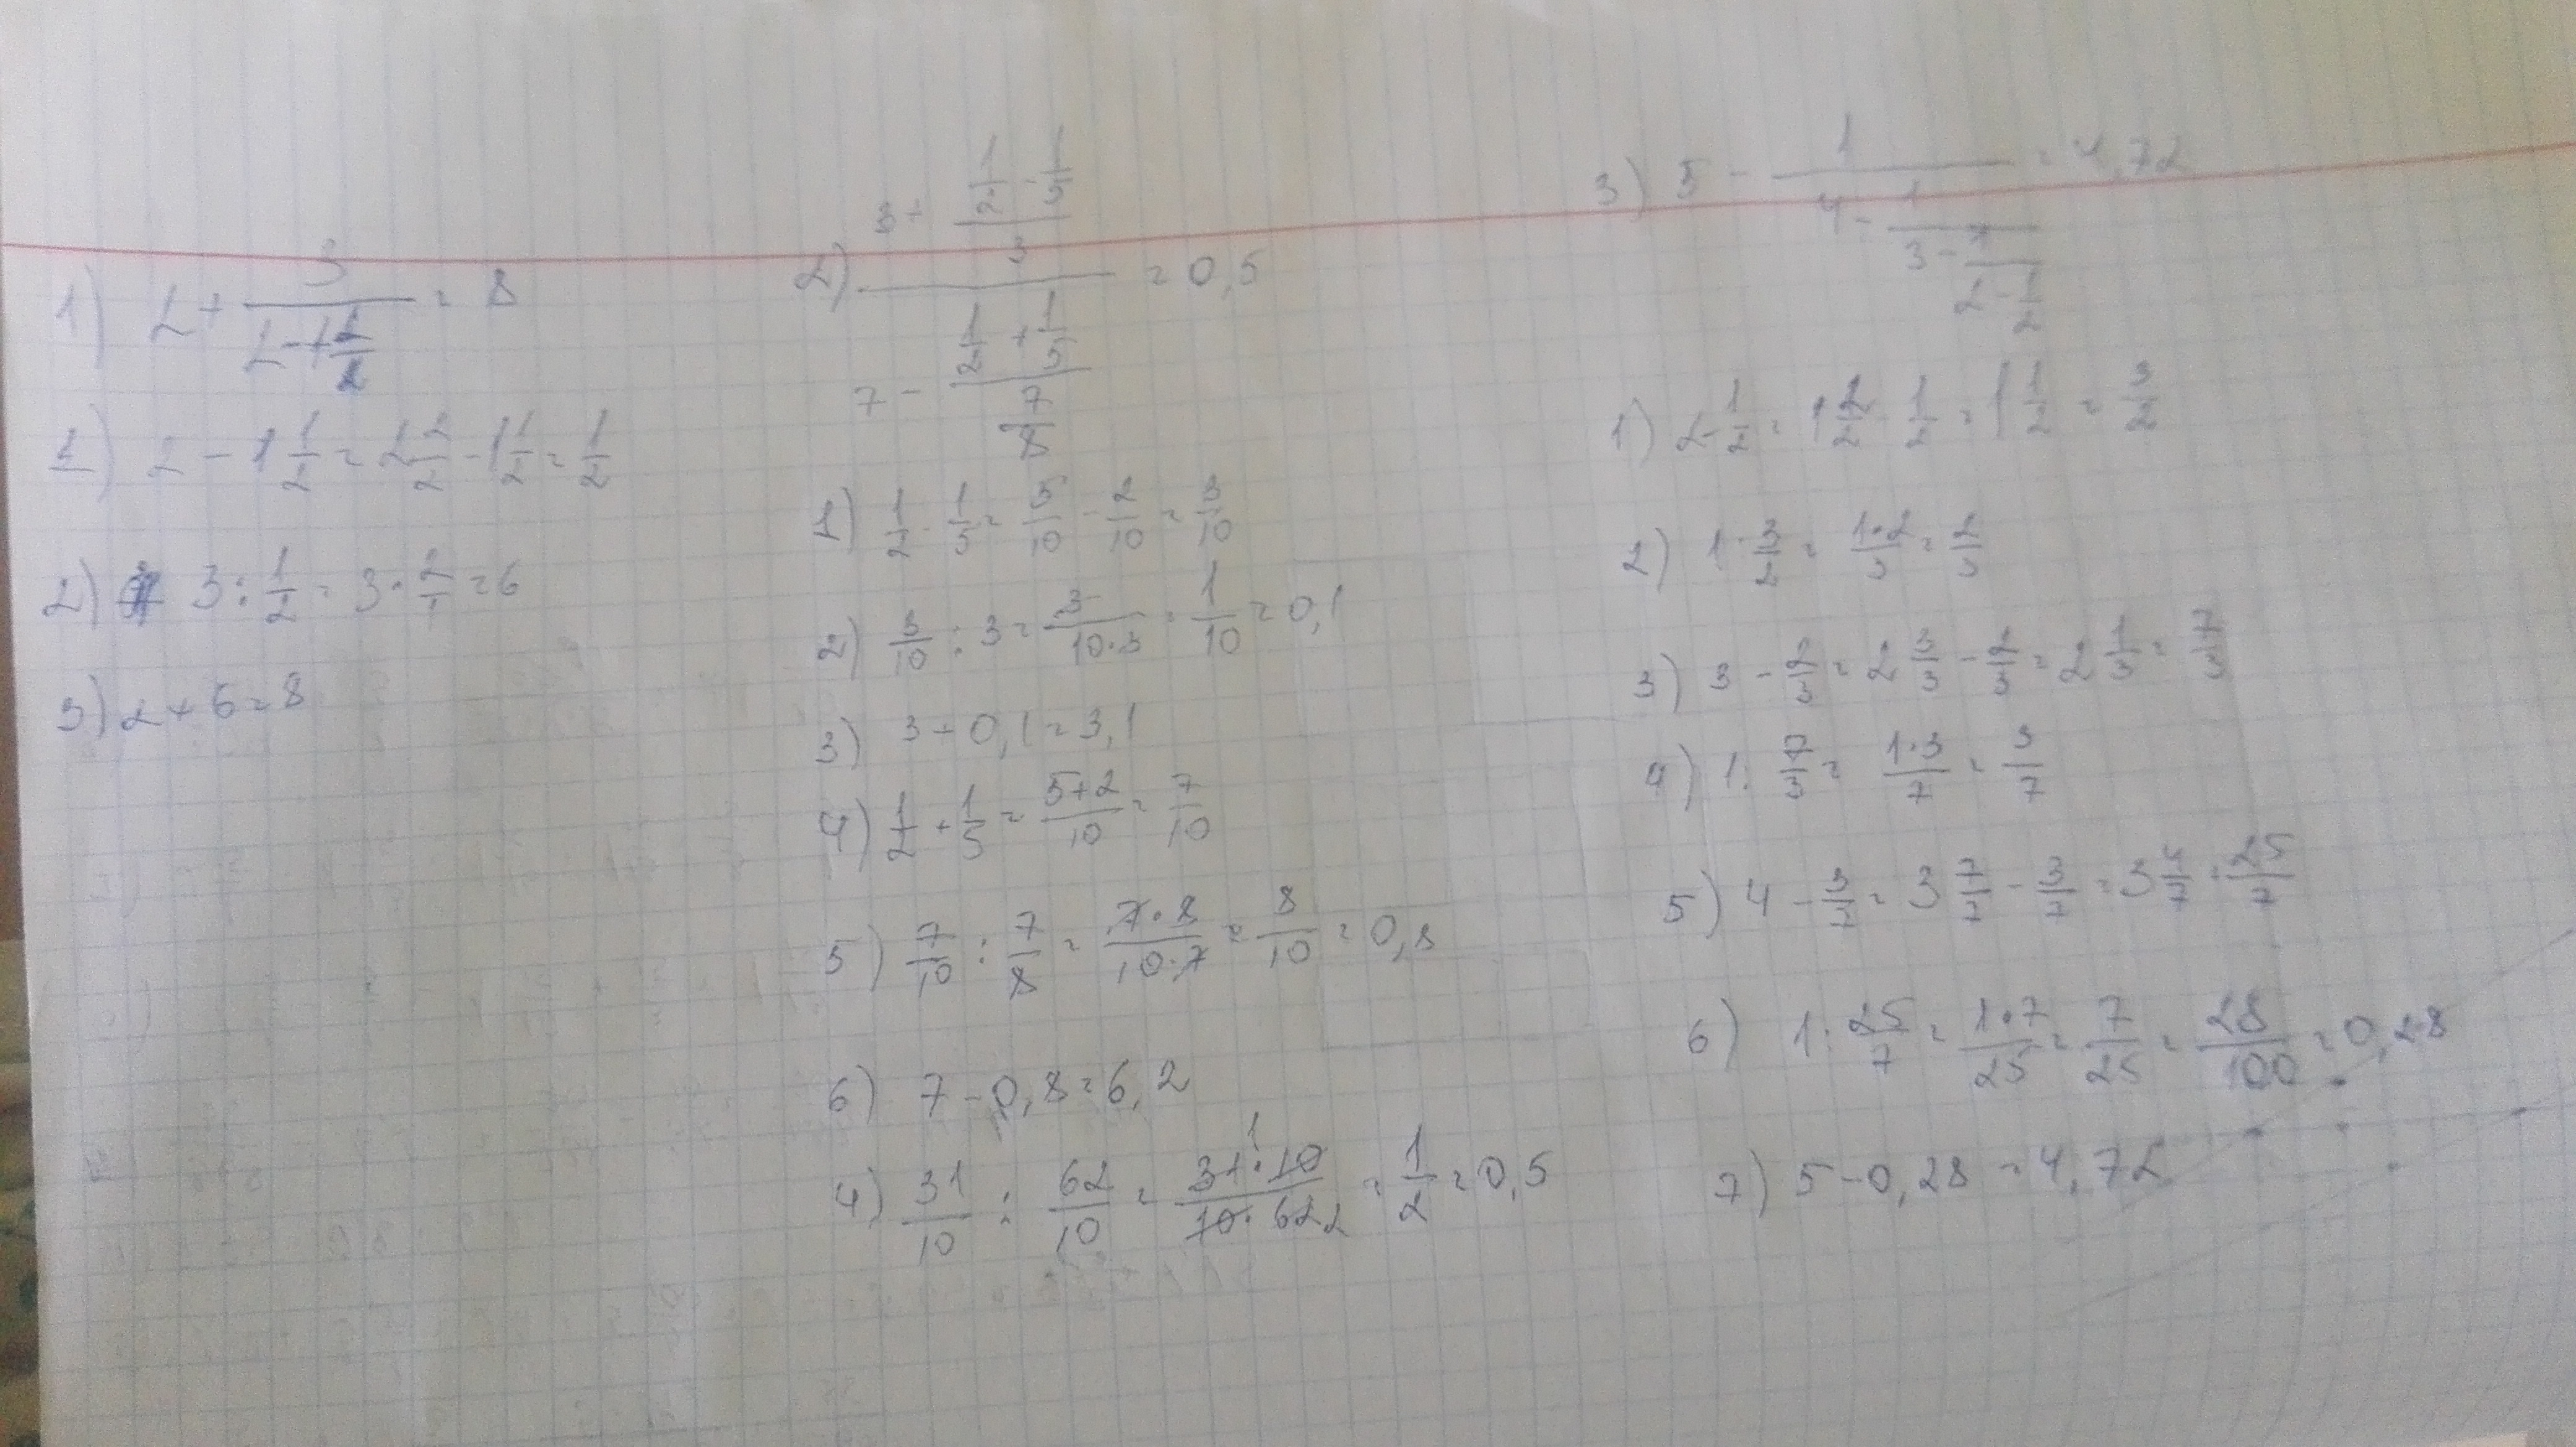 1) 2 + 3/(2 - 1 1/2) = 8
1) 2 - 1 1/2 = 1 2/2 - 1 1/2 = 1/2
2) 3 : 1/2 = 3 · 2/1 = 6
3) 2 + 6 = 8
2) (3 + (1/2 - 1/5)/3)/(7 - (1/2 + 1/5)/(7/8)) = 0,5
1) 1/2 - 1/5 = 5/10 - 2/10 = 3/10
2) 3/10 : 3 = 3/(10·3) = 1/10 = 0,1
3) 3 + 0,1 = 3,1
4) 1/2 + 1/5 = (5+2)/10 = 7/10
5) 7/10 : 7/8 = (7·8)/(10·7) = 8/10 = 0,8
6) 7 - 0,8 = 6,2
4) 31/10 : 62/10 = (31·10)/(10·62) 1 2 = 1/2 = 0,5
3) 5 - 1/(4 - 1/(3 - 1/(2 - 1/2))) = 4,72
1) 2 - 1/2 = 1 2/2 - 1/2 = 1 1/2 = 3/2
2) 1 : 3/2 = (1·2)/3 = 2/3
3) 3 - 2/3 = 2 3/3 - 2/3 = 2 1/3 = 7/3
4) 1 : 7/3 = (1·3)/7 = 3/7
5) 4 - 3/7 = 3 7/7 - 3/7 = 3 4/7 = 25/7
6) 1 : 25/7 = (1·7)/25 = 7/25 = 28/100 = 0,28
7) 5 - 0,28 = 4,72